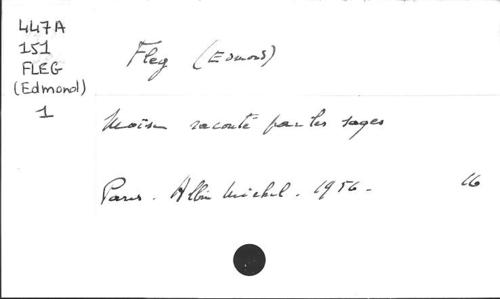 447A
151
FLEG
(Edmond)
1
Fleg (Edmond)
Moïse raconté par les sages
Paris. Albin Michel. 1956.
16